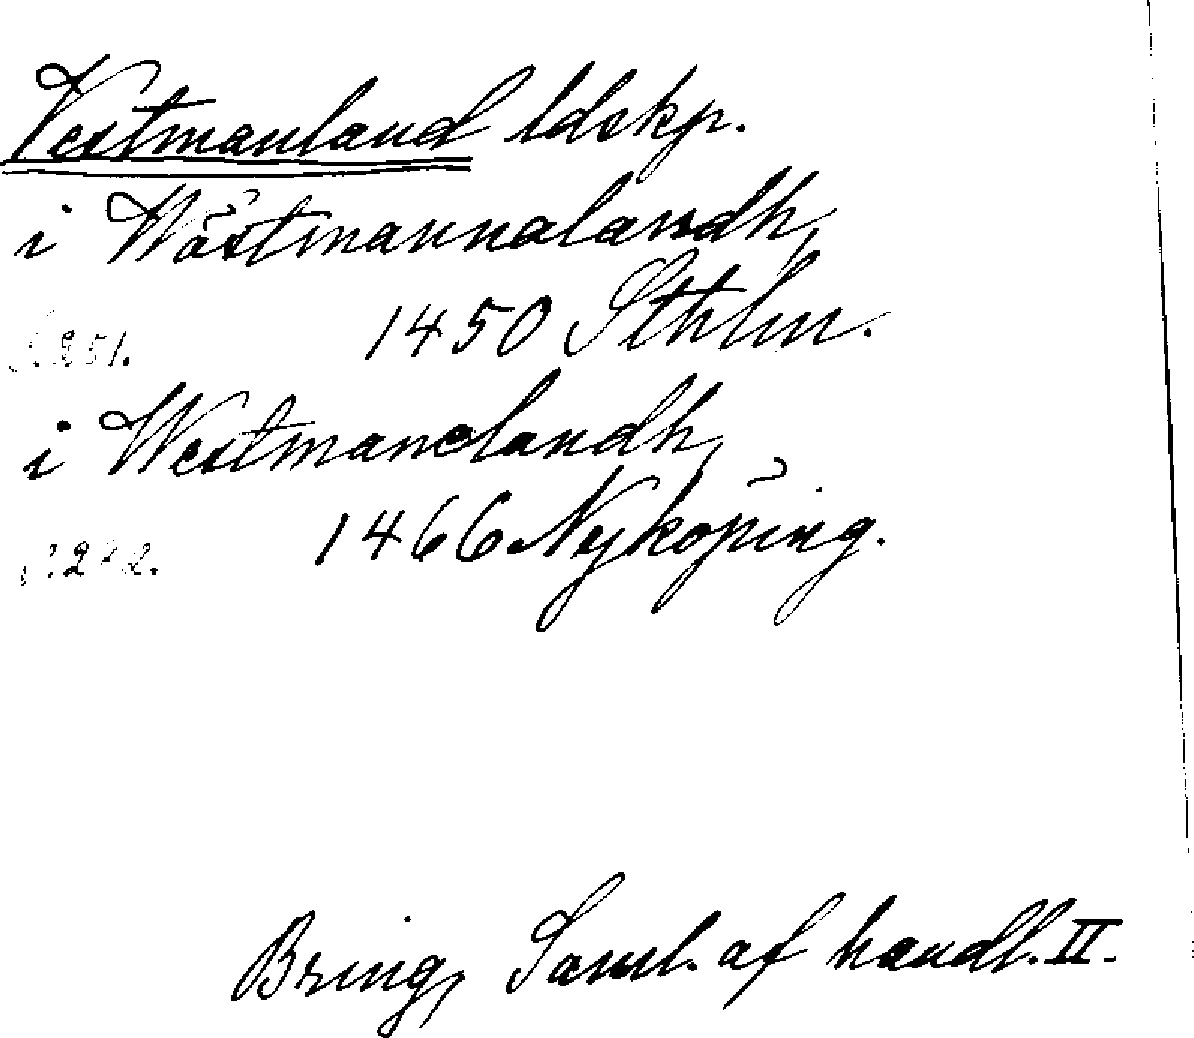 Vestmanland ldskp.
i Wästmannalandh,
1450 Sthlm.
i Westmanelandh,
1466 Nyköping.
Bring, Saml. af handl. II.